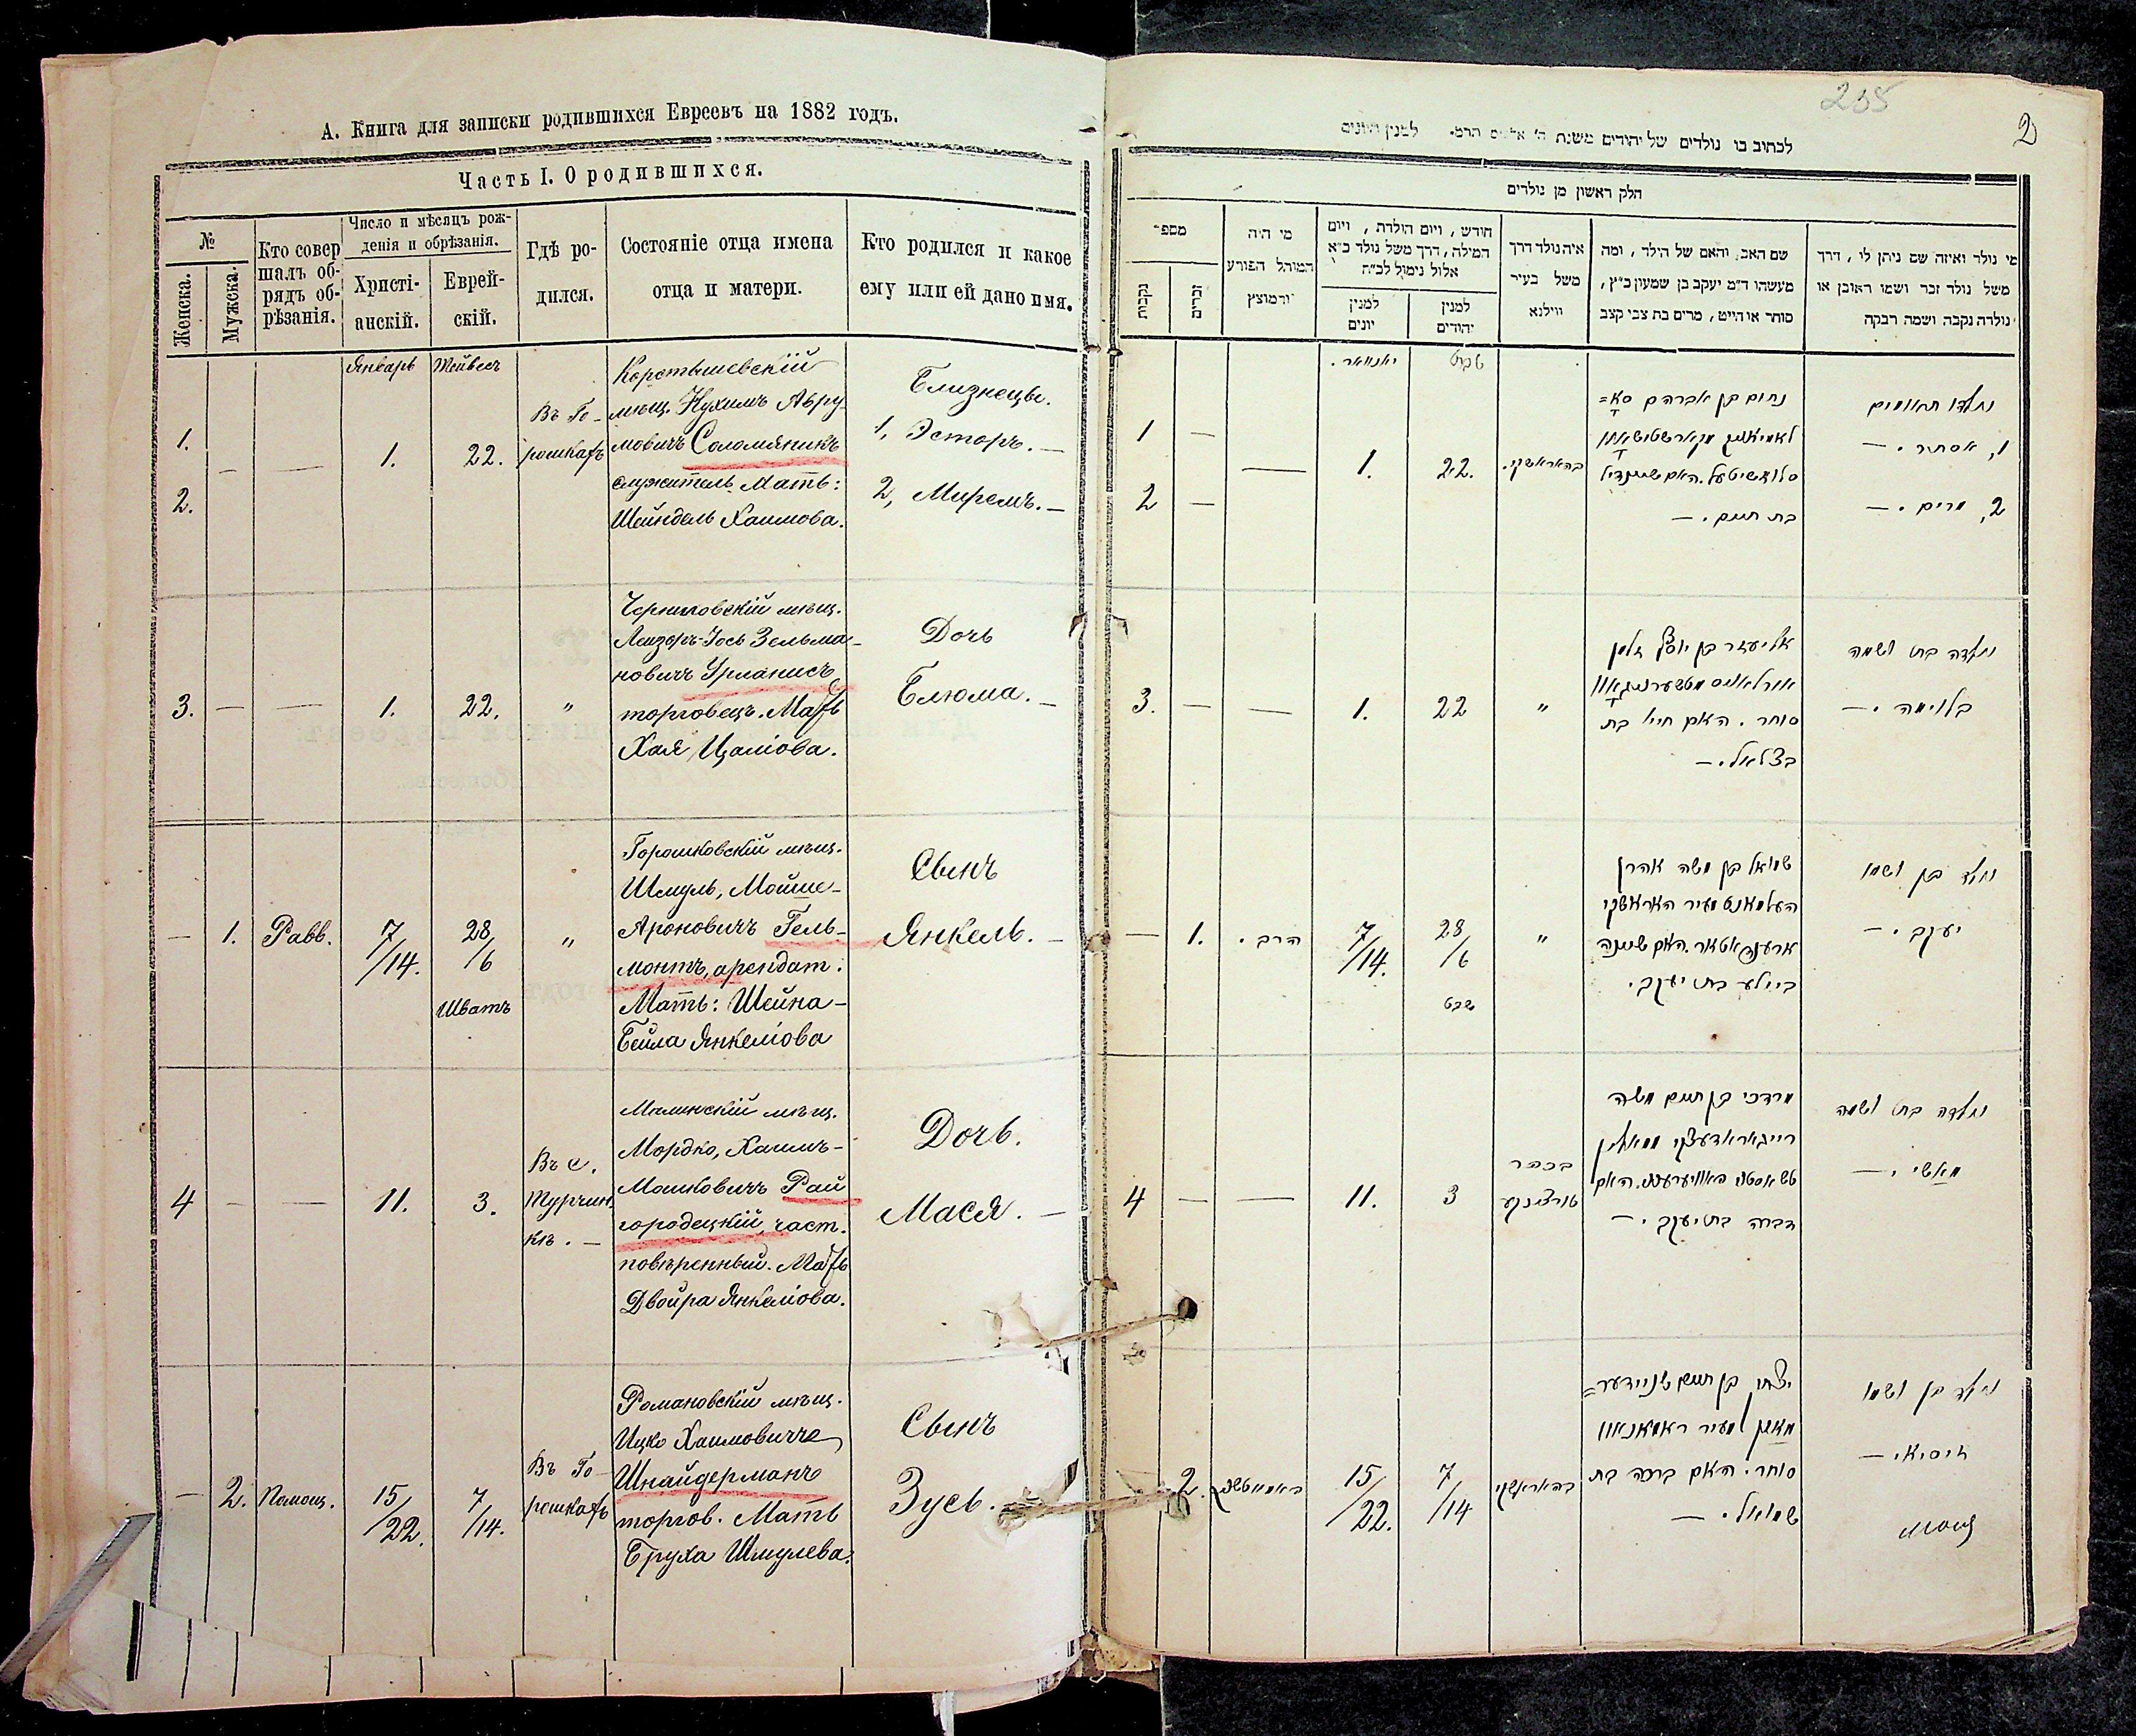 А. Книга для записки родившихся Евреевъ на 1882 годъ.
Часть I. О родившихся.
№
Женска.
Мужска.
Кто совер
шалъ об-
рядъ об-
рѣзанія.
Число и мѣсяцъ рож-
денія и обрѣзанія.
Христі-
анскій.
Еврей-
скій.
Гдѣ ро-
дился.
Состояніе отца имена
отца и матери.
Кто родился и какое
ему или ей дано имя.
Январь
Тейвесъ
1.
2.
—
—
1.
22.
Въ Го-
рошкахъ
Коростышевскій
мѣщ. Нухимъ Абру-
мовичъ Соломяникъ
служитель. Мать:
Шейндель Хаимова.
Близнецы.
1, Эстеръ. —
2, Миремъ. —
3.
—
—
1.
22.
"
Черниловскій мѣщ.
Лейзоръ-Іось Зельма-
новичъ Урланисъ
торговецъ. Мать
Хая Цаліова.
Дочь
Блюма. —
—
1.
Равв.
7
/14.
28
/6
Шватъ
"
Горошковскій мѣщ.
Шмуль, Мойше-
Ароновичъ Гель-
монтъ, арендат.
Мать: Шейна-
Бейла Янкеліова
Сынъ
Янкель. —
4
—
—
11.
3.
Въ с.
Турчин
кѣ. —
Малинскій мѣщ.
Мордко, Хаимъ-
Мошковичъ Рай
городецкій, част.
повѣренный. Мать
Двойра Янкеліова.
Дочь.
Мася. —
—
2.
Помощ.
15
/22.
7
/14.
Въ Го-
рошкахъ
Романовскій мѣщ.
Ицко Хаимовичъ
Шнайдерманъ
торгов. Мать
Бруха Шмулева.
Сынъ
Зусь.
235
2
לכתוב בו נולדים של יהודים משנת ה' אלפים תרמ״ למנין היונים
חלק ראשון מן נולדים
מספר
נקבות
זכרים
מי היה
המוהל הפורע
והמוצץ
חודש, ויום הולדת, ויום
המילה, דרך משל נולד כ״א
אלול נימול לכ״ח
למנין
יונים
למנין
יהודים
איה נולד דרך
משל בעיר
ווילנא
שם האב, והאם של הילד, ומה
מעשהו ד״מ יעקב בן שמעון כ״ץ,
סוחר או חייט, מרים בת צבי קצב
מי נולד ואיזה שם ניתן לו, דרך
משל נולד זכר ושמו ראובן או
נולדה נקבה ושמה רבקה
יאנואר.
טבת
1
—
2
—
—
1.
22.
בהאראשקי.
נחום בן אברהם סא=
בת חיים. —
נולדו תאומים
1, אסתר. —
2, מרים. —
3.
—
—
1.
22
"
אליעזר בן יוסף זלמן
סוחר. האם חייא בת
בצלאל. —
נולדה בת ושמה
בלומה. —
—
1.
הרב.
7
/14.
28
/6
שבט
"
שמואל בן משה אהרן
העלמאנט מעיר האראשקי
ביילע בת יעקב.
נולד בן ושמו
יעקב. —
4
—
—
11.
3
בכפר
טורצינקע
מרדכי בן חיים משה
דבורה בת יעקב. —
נולדה בת ושמה
מאשי. —
2.
15
/22.
7
/14
בהאראשקי
יצחק בן חיים שניידער=
מאן מעיר ראמאנאוו
סוחר. האם ברכה בת
שמואל. —
נולד בן ושמו
זיסיא. —